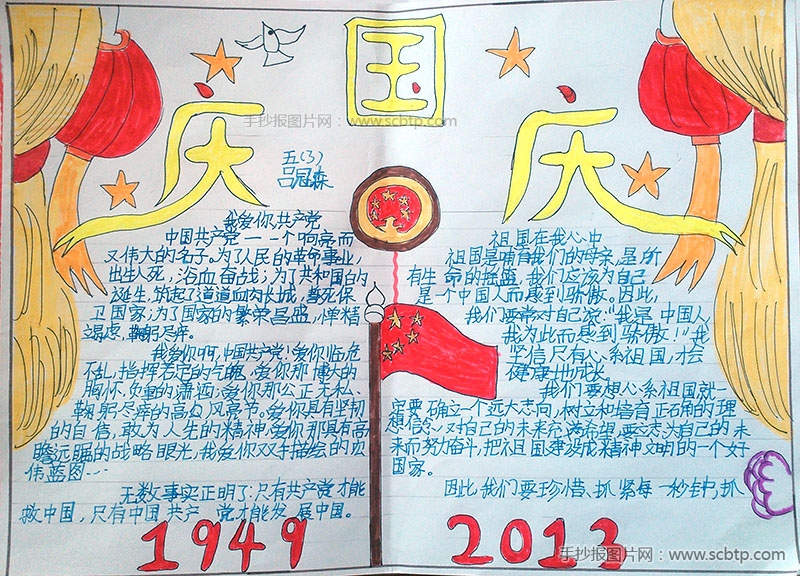 国
庆
庆
手抄报图片网：www.scbtp.com
五(3)
吕冠森
我爱你共产党
中国共产党一一个响亮而
又伟大的名子。为了人民的革命事业，
出生入死，浴血奋战；为了共和国的
诞生，筑起了道道血肉长城，誓死保
卫国家；为了国家的繁荣昌盛，惮精
竭虑，鞠躬尽瘁。
我爱你啊，中国共产党！爱你临危
不乱，指挥若定的气魄，爱你那博大的
胸怀，负重的潇洒；爱你那公正无私、
鞠躬尽瘁的高尚风亮节。爱你具有坚韧
的自信，敢为人先的精神，爱你那具有高
瞻远瞩的战略眼光，我爱你双手描绘的
伟蓝图…
无数事实正明了：只有共产党才能
救中国，只有中国共产党才能发展中国。
1949
祖国在我心中
祖国是哺育我们的母亲，是所
有生命的摇篮，我们应该为自己
是一个中国人而感到骄傲。因此，
我们要常对自己说：“我是中国人，
我为此而感到骄傲！”我
坚信只有心系祖国，才会
健康地成长
我们要想心系祖国就一
定要确立一个远大志向，树立和培育正确的理
想信念，对自己的未来充满希望，要为自己的未
来而努力奋斗，把祖国建设成精神文明的一个好
国家。
因此，我们要珍惜、抓紧每一秒钟，抓
2013
手抄报图片网：www.scbtp.com